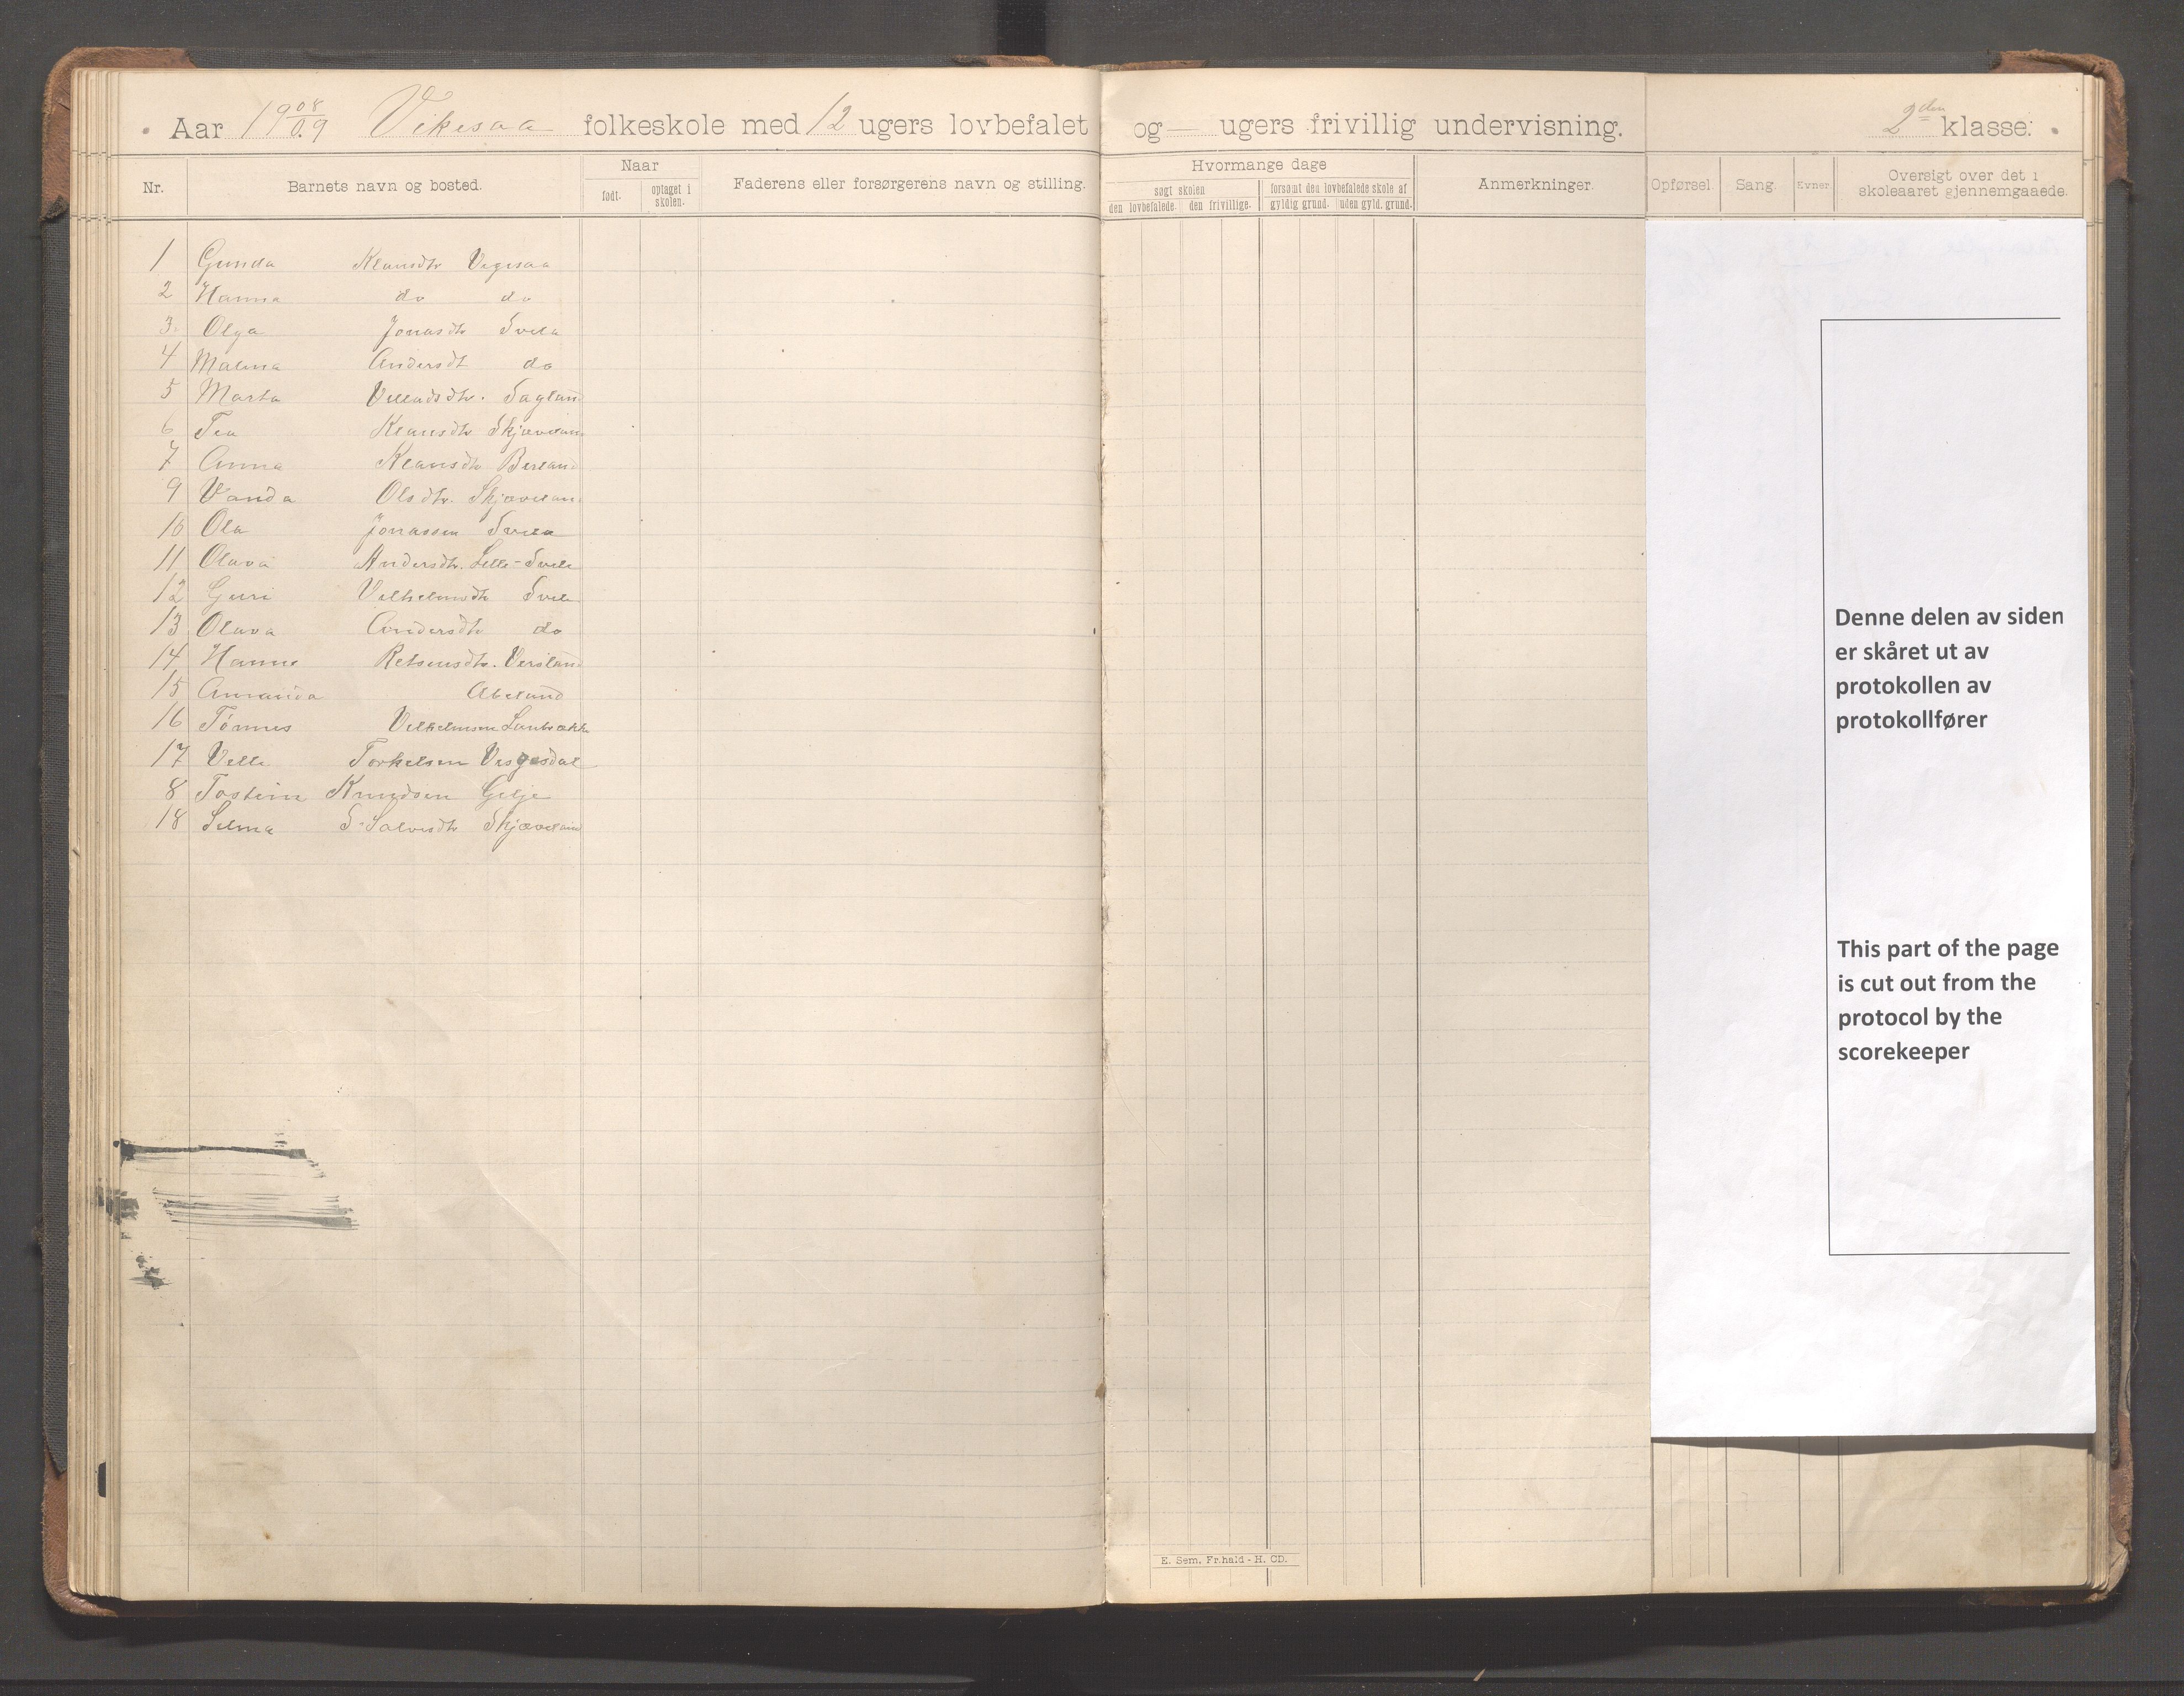 Aar 19 08/09 Vikesaa folkeskole med 12 ugers lovbefalet og — ugers frivillig undervisning. 2den klasse.
Nr. Barnets navn og bosted. Naar født. optaget i skolen. Faderens eller forsørgerens navn og stilling. Hvormange dage søgt skolen den lovbefalede. den frivillige. forsømt den lovbefalede skole af gyldig grund. uden gyld. grund. Anmerkninger. Opførsel Sang. Evner. Oversigt over det i skoleaaret gjennemgaaede.
1 Gunda Klausdtr Vigesaa
2 Hanna do do
3 Olga Jonasdtr Svela
4 Malena Andersdt do
5 Marta Villadsdtr. Sagland
6 Tea Klausdtr Skjæveland
7 Anna Klausdtr Berland
9 Vanda Olsdtr. Skjæveland
10 Ola Jonassen Svela
11 Olava Andersdtr. Lille-Svela
12 Guri Vilhelmsdtr Svela
13 Olava Andersdtr do
14 Hanne Versland
15 Amanda Abeland
16 Tønnes Vilhelmsen
17 Velle Torkelsen
8 Tostein Knudsen Gilje
18 Selma S. Salvesdtr Skjæveland
Denne delen av siden
er skåret ut av
protokollen av
protokollfører
This part of the page
is cut out from the
protocol by the
scorekeeper
E. Sem, Fr.hald - H. CD.